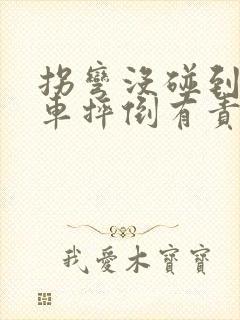 拐彎沒碰到
車摔倒有責
我愛木寶寶